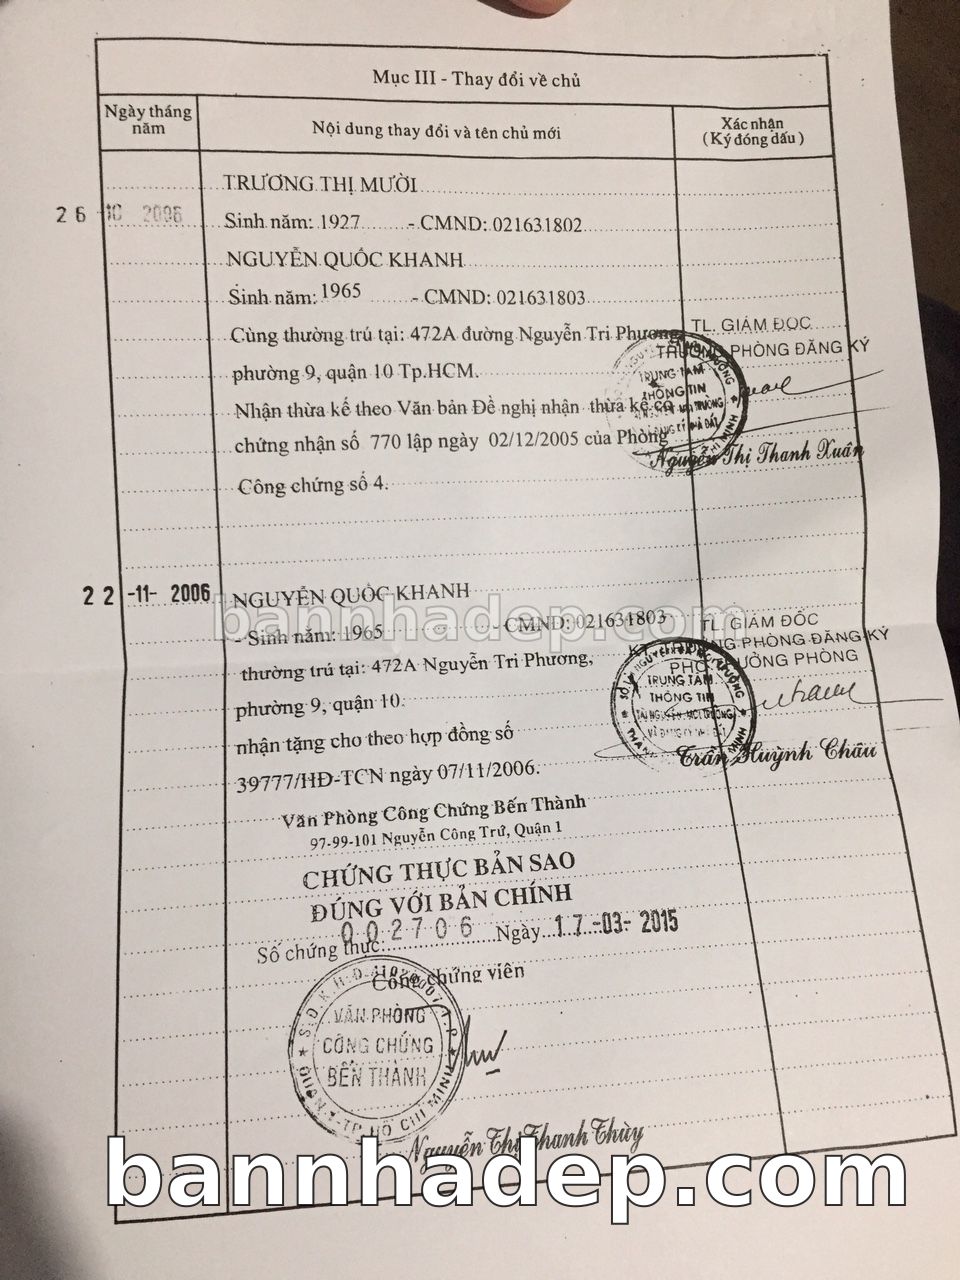 Mục III - Thay đổi về chủ
Ngày tháng năm
Nội dung thay đổi và tên chủ mới
Xác nhận
(Ký đóng dấu)
TRƯƠNG THỊ MƯỜI
26 10 2006
Sinh năm: 1927 - CMND: 021631802
NGUYỄN QUỐC KHANH
Sinh năm: 1965 - CMND: 021631803
Cùng thường trú tại: 472A đường Nguyễn Tri Phương,
phường 9, quận 10 Tp.HCM.
Nhận thừa kế theo Văn bản Đề nghị nhận thừa kế có
chứng nhận số 770 lập ngày 02/12/2005 của Phòng
Công chứng số 4.
TL. GIÁM ĐỐC
TRƯỞNG PHÒNG ĐĂNG KÝ
TRUNG TÂM
THÔNG TIN
Nguyễn Thị Thanh Xuân
22 -11- 2006
NGUYỄN QUỐC KHANH
bannhadep.com
- Sinh năm: 1965 - CMND: 021631803
thường trú tại: 472A Nguyễn Tri Phương,
phường 9, quận 10.
nhận tặng cho theo hợp đồng số
39777/HĐ-TCN ngày 07/11/2006.
TL. GIÁM ĐỐC
PHÒNG ĐĂNG KÝ
PHÓ TRƯỞNG PHÒNG
TRUNG TÂM
THÔNG TIN
TÀI NGUYÊN MÔI TRƯỜNG
Trần Huỳnh Châu
Văn Phòng Công Chứng Bến Thành
97-99-101 Nguyễn Công Trứ, Quận 1
CHỨNG THỰC BẢN SAO
ĐÚNG VỚI BẢN CHÍNH
Số chứng thực: 002706 Ngày 17-03-2015
Công chứng viên
VĂN PHÒNG
CÔNG CHỨNG
BẾN THÀNH
Nguyễn Thị Thanh Thùy
bannhadep.com